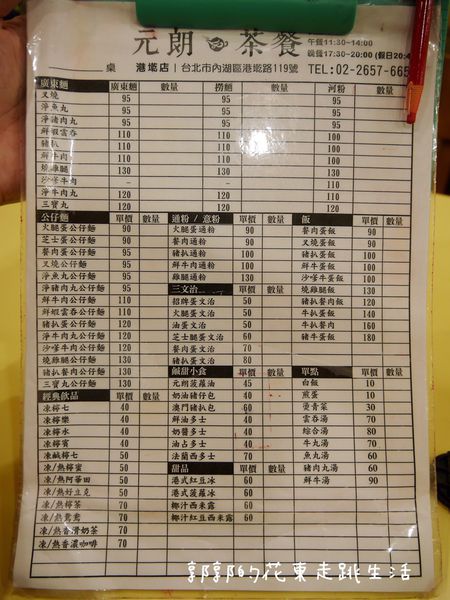 元朗 茶餐 午餐11:30~14:00
晚餐17:30~20:00 (假日20:4
桌 港墘店 | 台北市內湖區港墘路119號 TEL:02-2657-665
廣東麵 廣東麵 數量 撈麵 數量 河粉 數量
叉燒 95 95 95
淨魚丸 95 95 95
淨豬肉丸 95 95 95
鮮蝦雲吞 110 110 100
豬扒 110 110 100
鮮牛肉 110 110 100
燒雞腿 130 130 130
沙嗲牛肉 – – 110
淨牛肉丸 120 120 110
三寶丸 120 120 120
公仔麵 單價 數量 通粉 / 意粉 單價 數量 飯 單價 數量
火腿蛋公仔麵 90 火腿蛋通粉 90 餐肉蛋飯 90
芝士蛋公仔麵 90 餐肉通粉 90 叉燒蛋飯 90
餐肉蛋公仔麵 90 豬扒通粉 100 豬扒蛋飯 100
叉燒公仔麵 90 鮮牛肉通粉 100 鮮牛蛋飯 100
淨魚丸公仔麵 90 雞腿通粉 130 沙嗲牛飯 100
淨豬肉丸公仔麵 90 三文治 單價 數量 燒雞腿飯 130
鮮牛肉公仔麵 110 招牌蛋文治 50 豬扒餐肉飯 120
鮮蝦雲吞公仔麵 110 火腿蛋文治 50 牛扒蛋飯 140
豬扒蛋公仔麵 120 油蛋文治 50 牛扒餐肉 160
淨牛肉丸公仔麵 120 芝士腿蛋文治 60 豬牛蛋飯 180
沙嗲牛公仔麵 120 餐肉蛋文治 70
燒雞腿公仔麵 130 豬扒文治 80
豬扒餐肉公仔麵 130 鹹甜小食 單價 數量 單點 單價 數量
三寶丸公仔麵 130 元朗菠蘿油 45 白飯 10
經典飲品 單價 數量 奶油豬仔包 40 煎蛋 10
凍檸七 40 澳門豬扒包 60 燙青菜 30
凍檸樂 40 鮮油多士 40 雲吞湯 70
凍檸水 40 奶醬多士 40 綜合湯 80
凍檸賓 40 油占多士 40 牛丸湯 70
凍鹹檸七 50 法蘭西多士 50 魚丸湯 60
凍/熱檸蜜 50 甜品 單價 數量 豬肉丸湯 60
凍/熱阿華田 50 港式紅豆冰 60 鮮牛湯 90
凍/熱好立克 50 港式菠蘿冰 60
凍/熱檸茶 70 椰汁西米露 60
凍/熱鴛鴦 70 椰汁紅豆西米露 60
凍/熱香滑奶茶 70
凍/熱香濃咖啡 70
郭郭的花東走跳生活